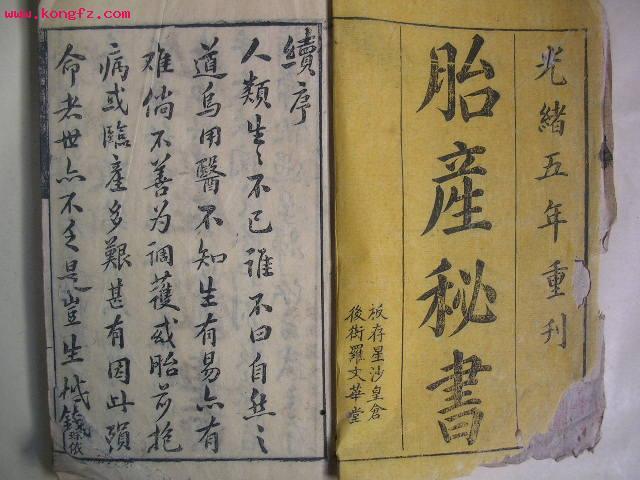 www.kongfz.com
光緒五年重刊
胎産秘書
板存星沙皇倉
後街羅文華堂
續序
人類生〻不已誰不曰自然之
道烏用醫不知生有易亦有
难倘不善为調護或胎前抱
病或臨産多艱甚有因此殞
命者世亦不乏是豈生